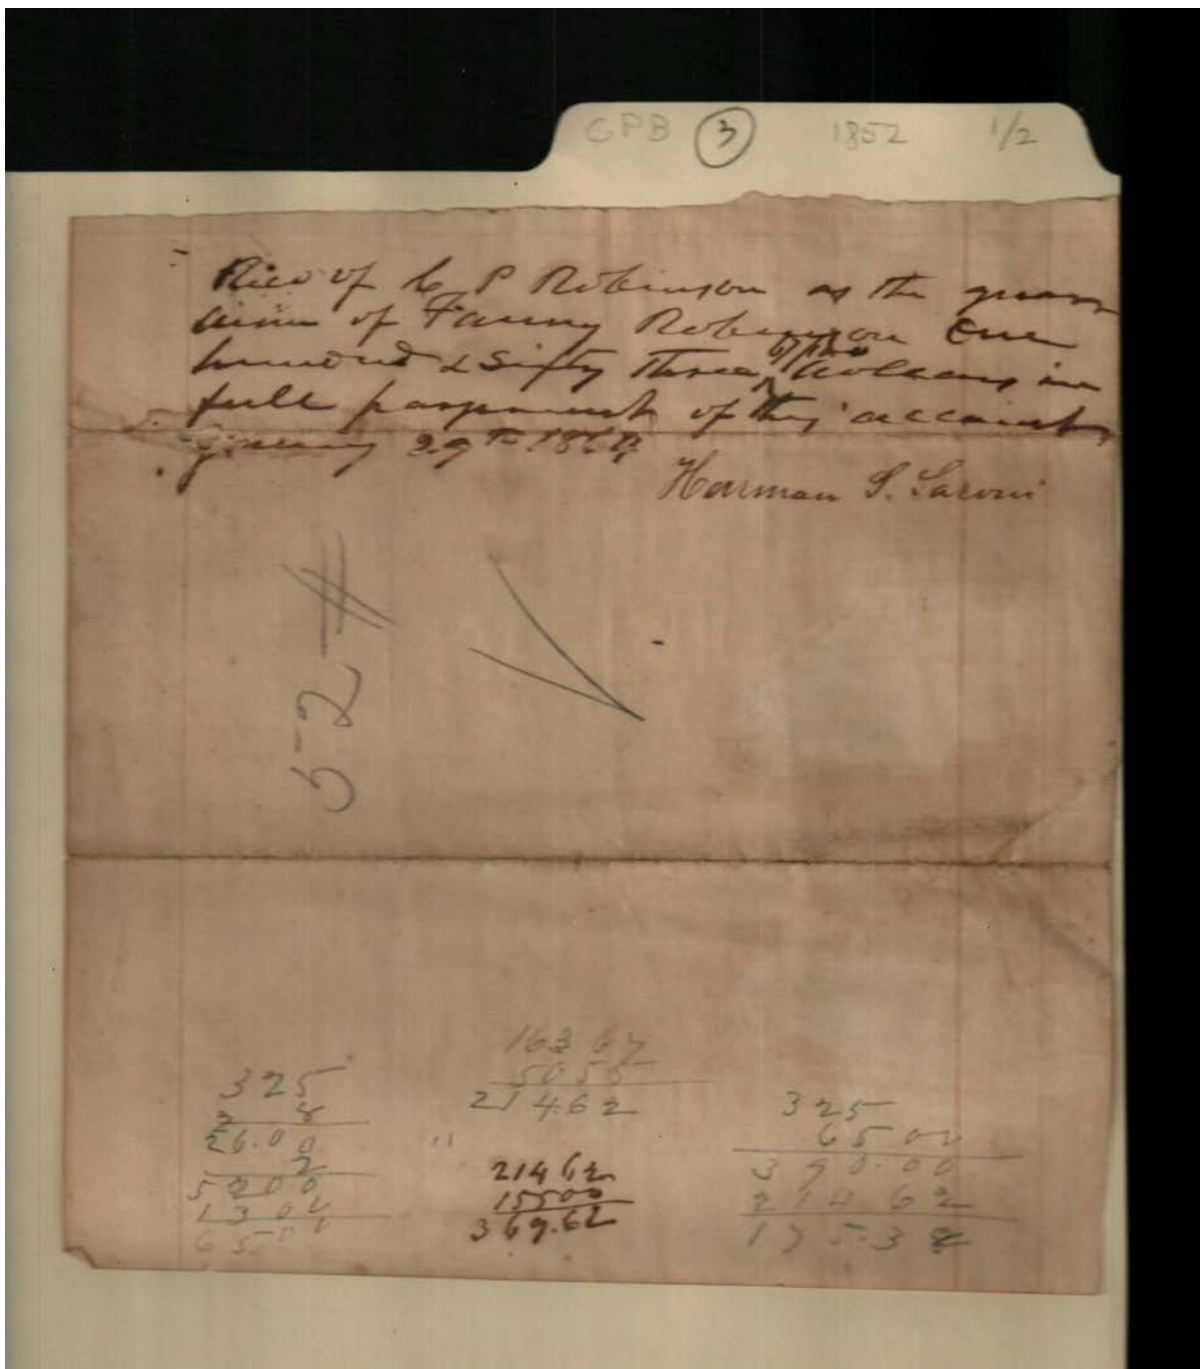 GPB 3 1852 1/2
Recd of C P Robinson as the guar
dian of Fanny Robinson One
hundred & Sixty three 67/100 dollars in
full payment of this account
January 29th 1864
Harman S. Saroni
52 #
163 67
50 55
214.62
325
8
26.00
2
5200
1300
65
21462
15500
369.62
325
65 00
390.00
214.62
175.38